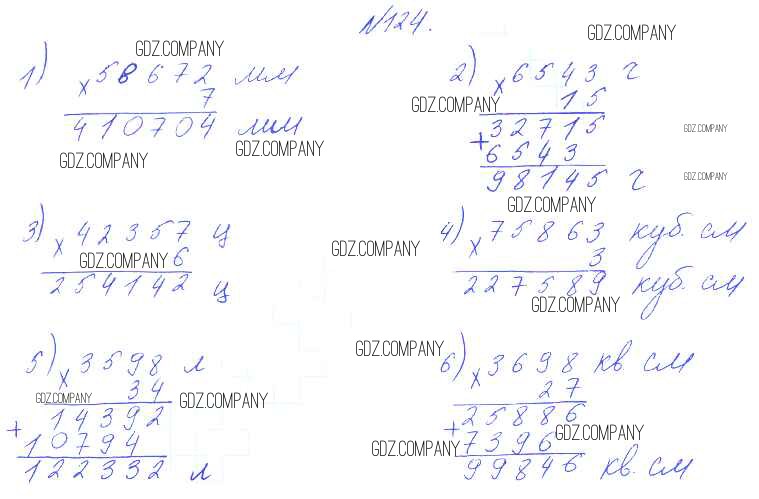 №124.
GDZ.COMPANY
GDZ.COMPANY
1) × 58672 мм
7
410704 мм
GDZ.COMPANY
GDZ.COMPANY
2) × 6543 г
GDZ.COMPANY
15
+ 32715
GDZ.COMPANY
6543
98145 г
GDZ.COMPANY
GDZ.COMPANY
3) × 42357 ц
GDZ.COMPANY
6
254142 ц
GDZ.COMPANY
4) × 75863 куб. см
3
227589 куб. см
GDZ.COMPANY
5) × 3598 л
34
GDZ.COMPANY
GDZ.COMPANY
+ 14392
10794
122332 л
GDZ.COMPANY
6) × 3698 кв. см
27
+ 25886
GDZ.COMPANY
7396
GDZ.COMPANY
99846 кв. см